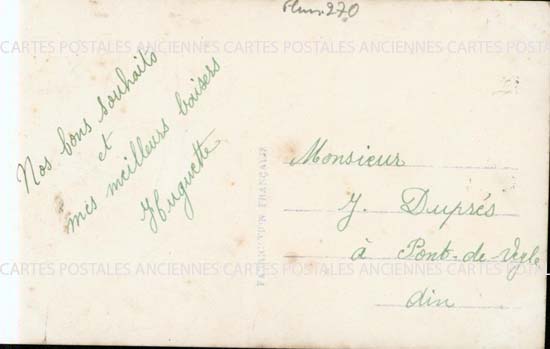 270
CARTES POSTALES ANCIENNES CARTES POSTALES ANCIENNES CARTES POSTALES ANCIENNES
Nos bons souhaits
et
mes meilleurs baisers
Huguette
FABRICATION FRANÇAISE
Monsieur
J. Duprés
à Pont-de-Veyle
CARTES POSTALES ANCIENNES CARTES POSTALES ANCIENNES CARTES POSTALES ANCIENNES